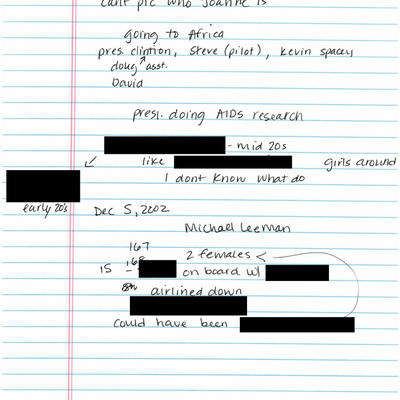 cant pic who Joanne is
going to Africa
pres. clinton, Steve (pilot), Kevin spacey
doug asst.
David
presi. doing AIDS research
- mid 20s
like girls around
I dont know what do
early 20's
Dec 5, 2002
Michael Leeman
167
168 2 females
15 - on board w/
airlined down
could have been